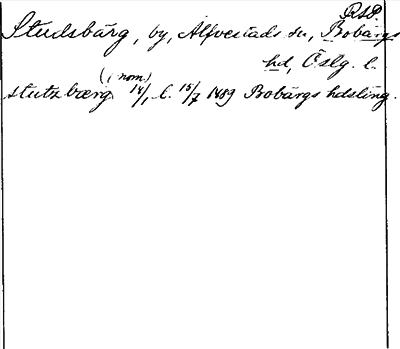 RSP.
Studsbärg, by, Alfvestads sn, Bobärgs
hd, Öslg. l.
(i nom.)
stutzbærg 14/1 l. 15/7 1489 Bobärgs hdsting.